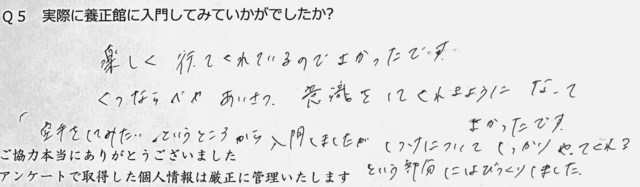 Q5 実際に養正館に入門してみていかがでしたか?
楽しく行てくれているのでよかったです。
くつならべや あいさつ、意識をしてくれるように なって
よかったです。
「空手をしてみたい」というところから入門しましたが しつけについて しっかり やってくれる
という部分にはびっくりしました。
ご協力本当にありがとうございました
アンケートで取得した個人情報は厳正に管理いたします